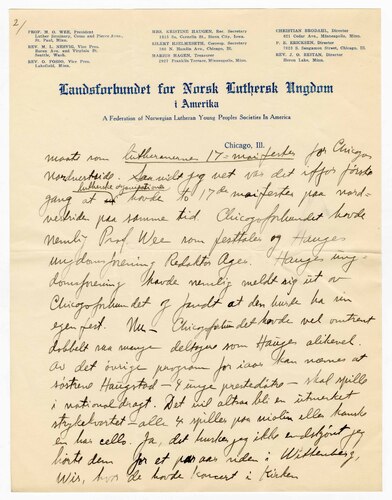 2/
PROF. M. O. WEE, President
Luther Seminary, Como and Pierce Aves.,
St. Paul, Minn.
REV. M. L. NESVIG, Vice Pres.
Boren Ave. and Virginia St.
Seattle, Wash.
REV. O. FOSSO, Vice Pres.
Lakefield, Minn.
MRS. KRISTINE HAUGEN, Rec. Secretary
1815 So. Cornelia St., Sioux City, Iowa
SILERT HJELMSETH, Cor. Secretary
N. Humboldt Ave., Chicago, Ill.
MARIUS HAGEN, Treasurer
2927 Franklin Terrace, Minneapolis, Minn.
CHRISTIAN BRODAHL, Director
621 Cedar Ave., Minneapolis, Minn.
P. E. ERICKSEN, Director
S. Sangamon Street, Chicago, Ill.
REV. J. O. REITAN, Director
Heron Lake, Minn.
Landsforbundet for Norsk Luthersk Ungdom
i Amerika
A Federation of Norwegian Lutheran Young Peoples Societies In America
Chicago, Ill.
maate som lutheranernes 17-maifester for Chicago
Nordvestside. Saavidt jeg vet var det iffor første
lutherske organisationer
gang at hovde to 17de maifester paa nord-
vestsiden paa samme tid Chicagoforbundet hovde
nemlig Prof. Wee som festtaler og Hauges
ungdomsforening Redaktør Ager. Hauges ung-
domsforening hovde nemlig meldt sig ut av
Chicagoforbundet og fandt at den burde ha sin
egen fest. Nu - Chicagoforbundet hovde vel omtrent
dobbelt saa mange deltagere som Hauges allikevel.
Av det øvrige program for iaar kan nævnes at
søstrene Haugstad - 4 unge prestedøtre - skal spille
i national dragt. Det vil altsaa bli en utmerket
strykekvartet - alle 4 spiller paa violin eller kanske
en har cello. Ja, det husker jeg ikke endskjønt jeg
hørte dem for et par aar siden i Wittenberg,
Wis, hvor de hovde koncert i Kirken